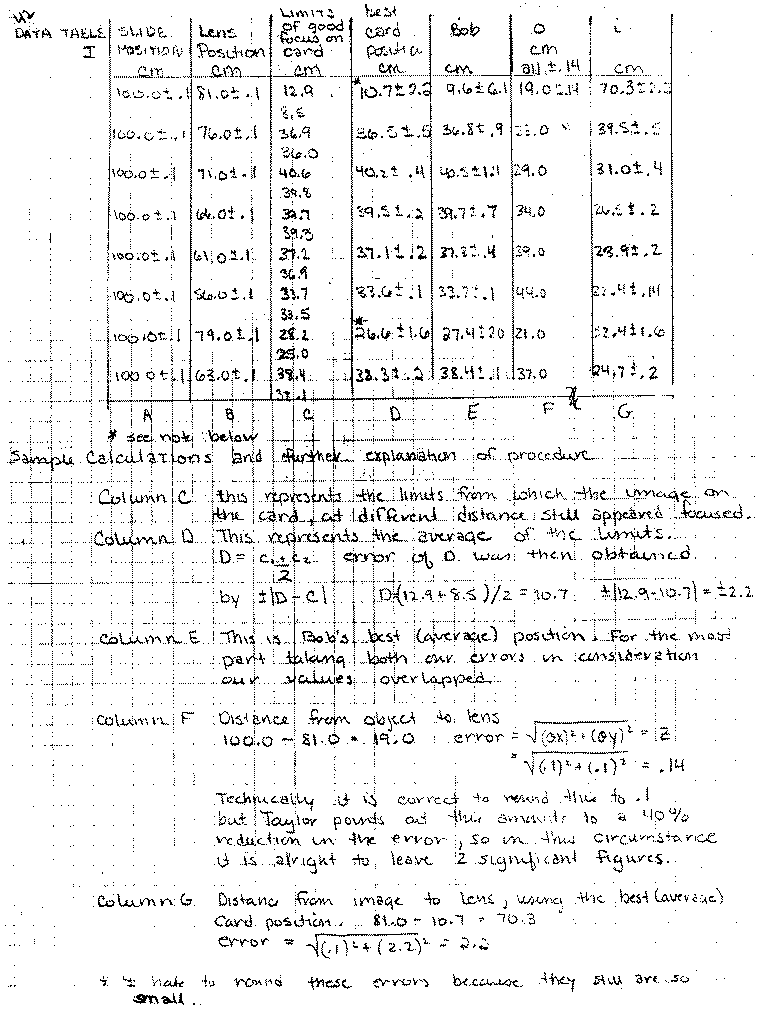 DATA TABLE I
SLIDE POSITION cm | Lens Position cm | Limits of good focus on card cm | best card position cm | Bob cm | O cm all ± .14 | i cm
100.0±.1 | 81.0±.1 | 12.9 8.5 | *10.7±2.2 | 9.6±6.1 | 19.0±.14 | 70.3±2.2
100.0±.1 | 76.0±.1 | 36.9 36.0 | 36.5±.5 | 36.8±.9 | 39.5±.5
100.0±.1 | 71.0±.1 | 40.6 39.8 | 40.2±.4 | 40.5±1.1 | 29.0 | 31.0±.4
100.0±.1 | 66.0±.1 | 39.7 39.3 | 39.5±.2 | 39.7±.7 | 34.0 | 26.5±.2
100.0±.1 | 61.0±.1 | 37.2 36.9 | 37.1±.2 | 39.0 | 23.9±.2
100.0±.1 | 56.0±.1 | 33.7 33.5 | 33.6±.1 | 33.7±.1 | 44.0 | 22.4±.14
100.0±.1 | 79.0±.1 | 28.2 25.0 | *26.6±1.6 | 21.0 | 52.4±1.6
100.0±.1 | 63.0±.1 | 38.4 | 38.3±.2 | 38.4±.1 | 37.0 | 24.7±.2
A B C D E F G
* see note below
Sample Calculations and further explanation of procedure
Column C this represents the limits from which the image on
the card, at different distance still appeared focused.
Column D This represents the average of the limits.
D = c₁ + c₂ / 2 error of D was then obtained
by ±|D - C| D=(12.9+8.5)/2 = 10.7 ±|12.9-10.7| = ±2.2
Column E This is Bob's best (average) position. For the most
part taking both our errors in consideration
our values overlapped.
Column F Distance from object to lens
100.0 - 81.0 = 19.0 error = √(δx)²+(δy)² = Z
√(.1)²+(.1)² = .14
Technically it is correct to round this to .1
but Taylor points out this amounts to a 40%
reduction in the error, so in this circumstance
it is alright to leave 2 significant figures.
Column G Distance from image to lens, using the best (average)
card position. 81.0 - 10.7 = 70.3
error = √(.1)²+(2.2)² = 2.2
* I hate to round these errors because they still are so
small.